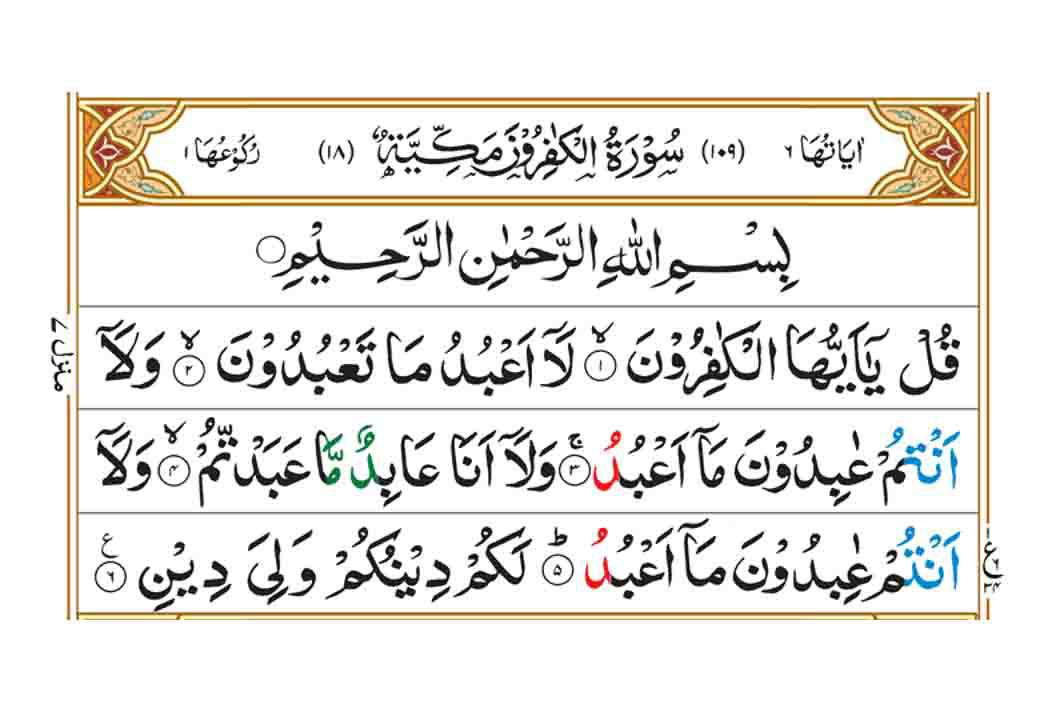 اٰيَاتُهَا ٦ (١٠٩) سُوْرَةُ الْكٰفِرُوْنَ مَكِّيَّةٌ (١٨) رُكُوْعُهَا ١
بِسْمِ اللّٰهِ الرَّحْمٰنِ الرَّحِيْمِ
قُلْ يٰٓاَيُّهَا الْكٰفِرُوْنَ ۙ۝١ لَاۤ اَعْبُدُ مَا تَعْبُدُوْنَ ۙ۝٢ وَلَاۤ
اَنْتُمْ عٰبِدُوْنَ مَاۤ اَعْبُدُ ۚ۝٣ وَلَاۤ اَنَا عَابِدٌ مَّا عَبَدْتُّمْ ۙ۝٤ وَلَاۤ
اَنْتُمْ عٰبِدُوْنَ مَاۤ اَعْبُدُ ؕ۝٥ لَكُمْ دِيْنُكُمْ وَلِيَ دِيْنِ ۝٦
ع
منزل ٧
ع ٦ ٣٤